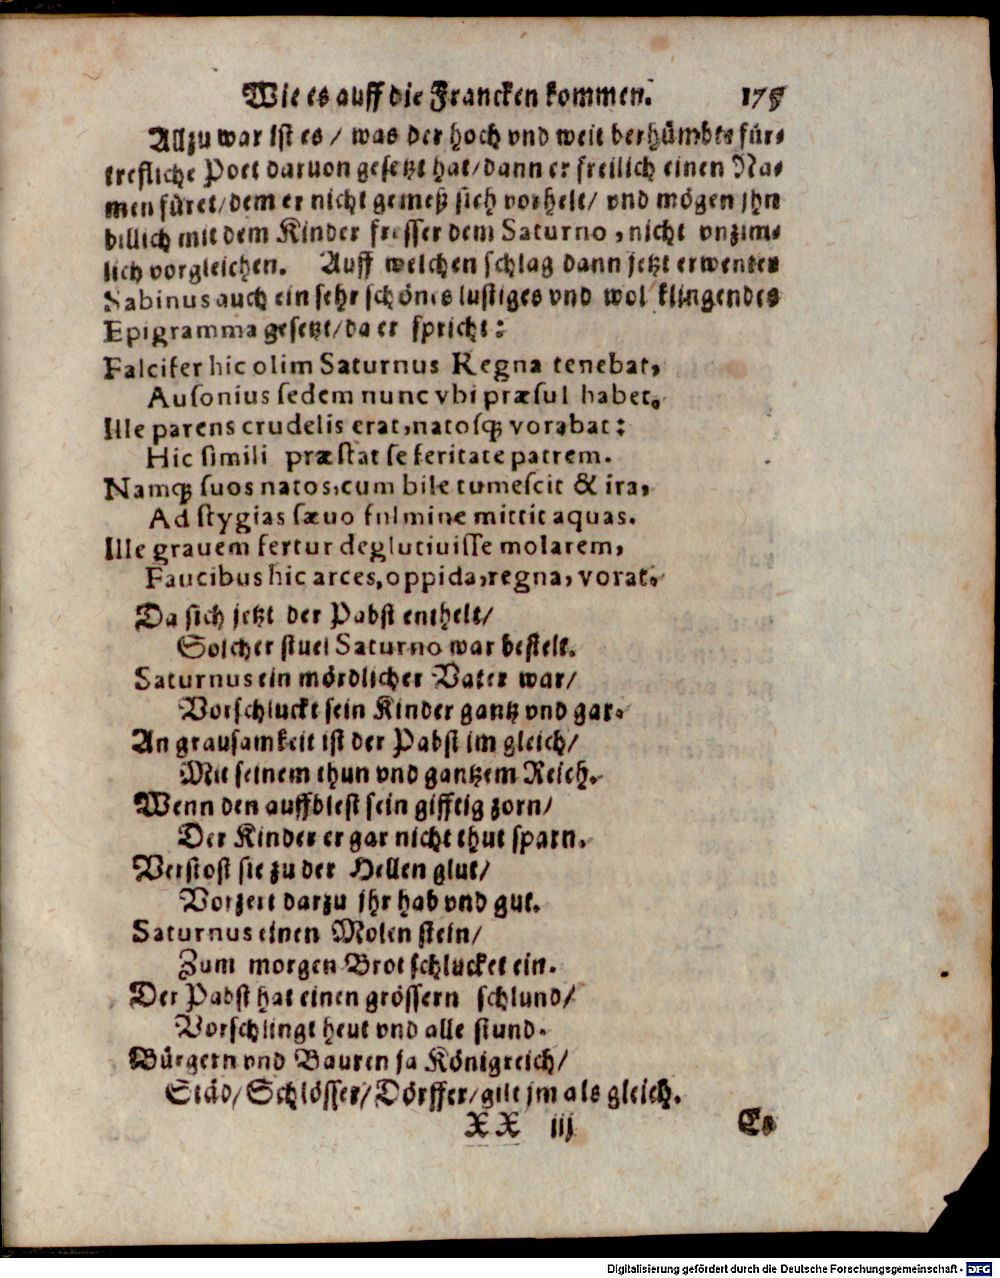 Wie es auff die Francken kommen. 175
Allzu war ist es / was der hoch vnd weit berhümbte für-
trefliche Poet daruon gesetzt hat / dann er freilich einen Na-
men füret / dem er nicht gemeß sich vorhelt / vnd mögen jhn
billich mit dem Kinder fresser dem Saturno, nicht vnzim-
lich vorgleichen. Auff welchen schlag dann jetzt erwenter
Sabinus auch ein sehr schönes lustiges vnd wol klingendes
Epigramma gesetzt / da er spricht:
Falcifer hic olim Saturnus Regna tenebat,
Auſonius ſedem nunc vbi præſul habet.
Ille parens crudelis erat, natoſq; vorabat:
Hic ſimili præſtat ſe feritate patrem.
Namq; ſuos natos, cum bile tumeſcit & ira,
Ad ſtygias ſæuo fulmine mittit aquas.
Ille grauem fertur deglutiuiſſe molarem,
Faucibus hic arces, oppida, regna, vorat.
Da sich jetzt der Pabst enthelt /
Solcher stuel Saturno war bestelt.
Saturnus ein mördlicher Vater war /
Vorschluckt sein Kinder gantz vnd gar.
An grausamkeit ist der Pabst im gleich /
Mit seinem thun vnd gantzem Reich.
Wenn den auffblest sein gifftig zorn /
Der Kinder er gar nicht thut sparn.
Verstost sie zu der Hellen glut /
Vorzert darzu jhr hab vnd gut.
Saturnus einen Molen stein /
Zum morgen Brot schlucket ein.
Der Pabst hat einen grössern schlund /
Vorschlingt heut vnd alle stund.
Bürgern vnd Bauren ja Königreich /
Städ / Schlösser / Dörffer / gilt jm als gleich.
XX iij Es
Digitalisierung gefördert durch die Deutsche Forschungsgemeinschaft - DFG